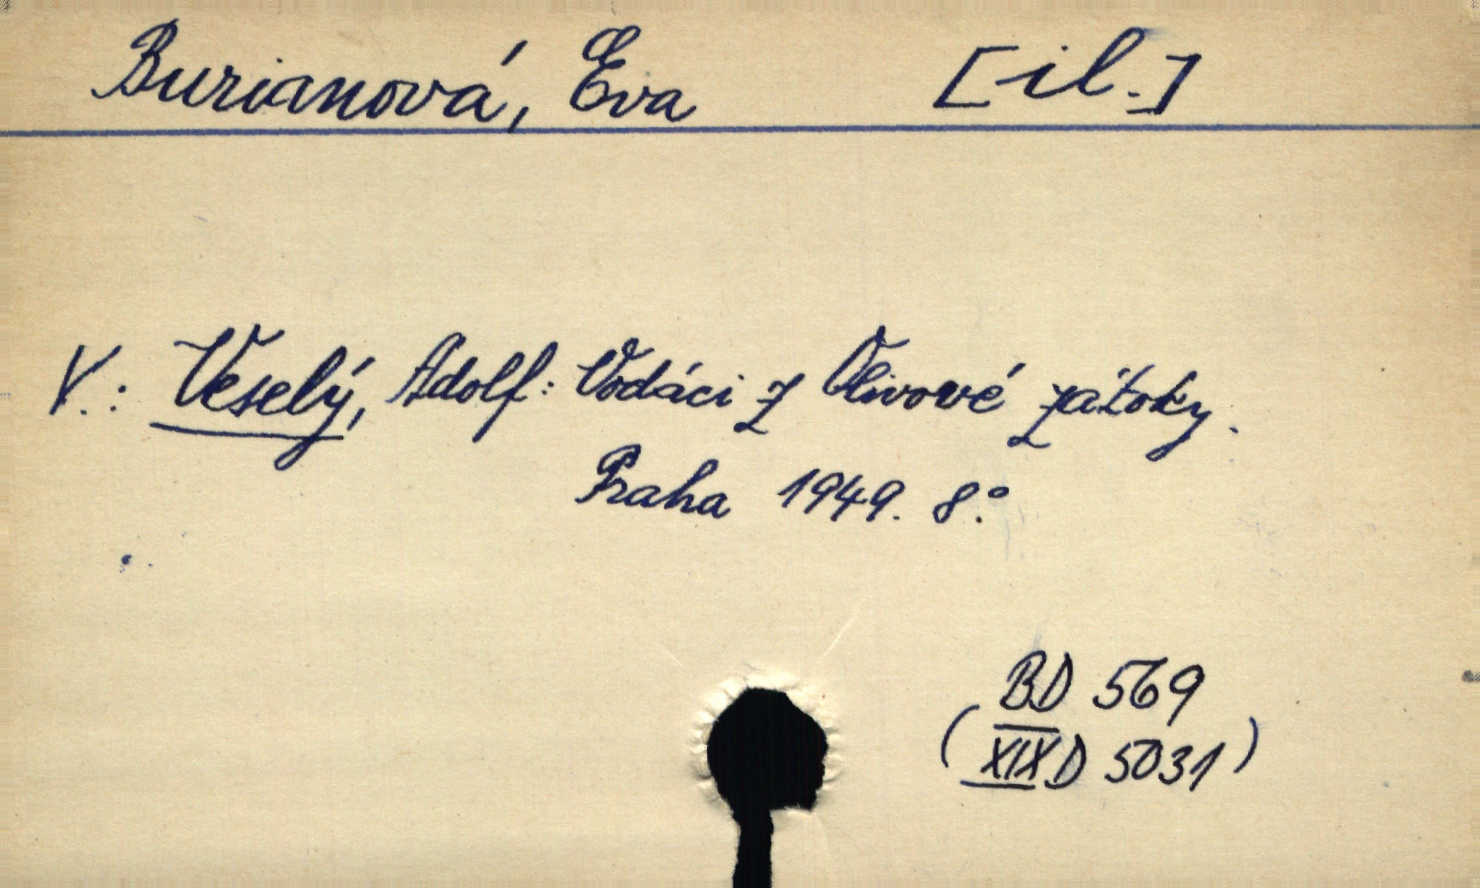 Burianová, Eva [il.]
V.: Veselý, Adolf: Vodáci z Olivové zátoky.
Praha 1949. 8.°
BD 569
(XIX D 5031)